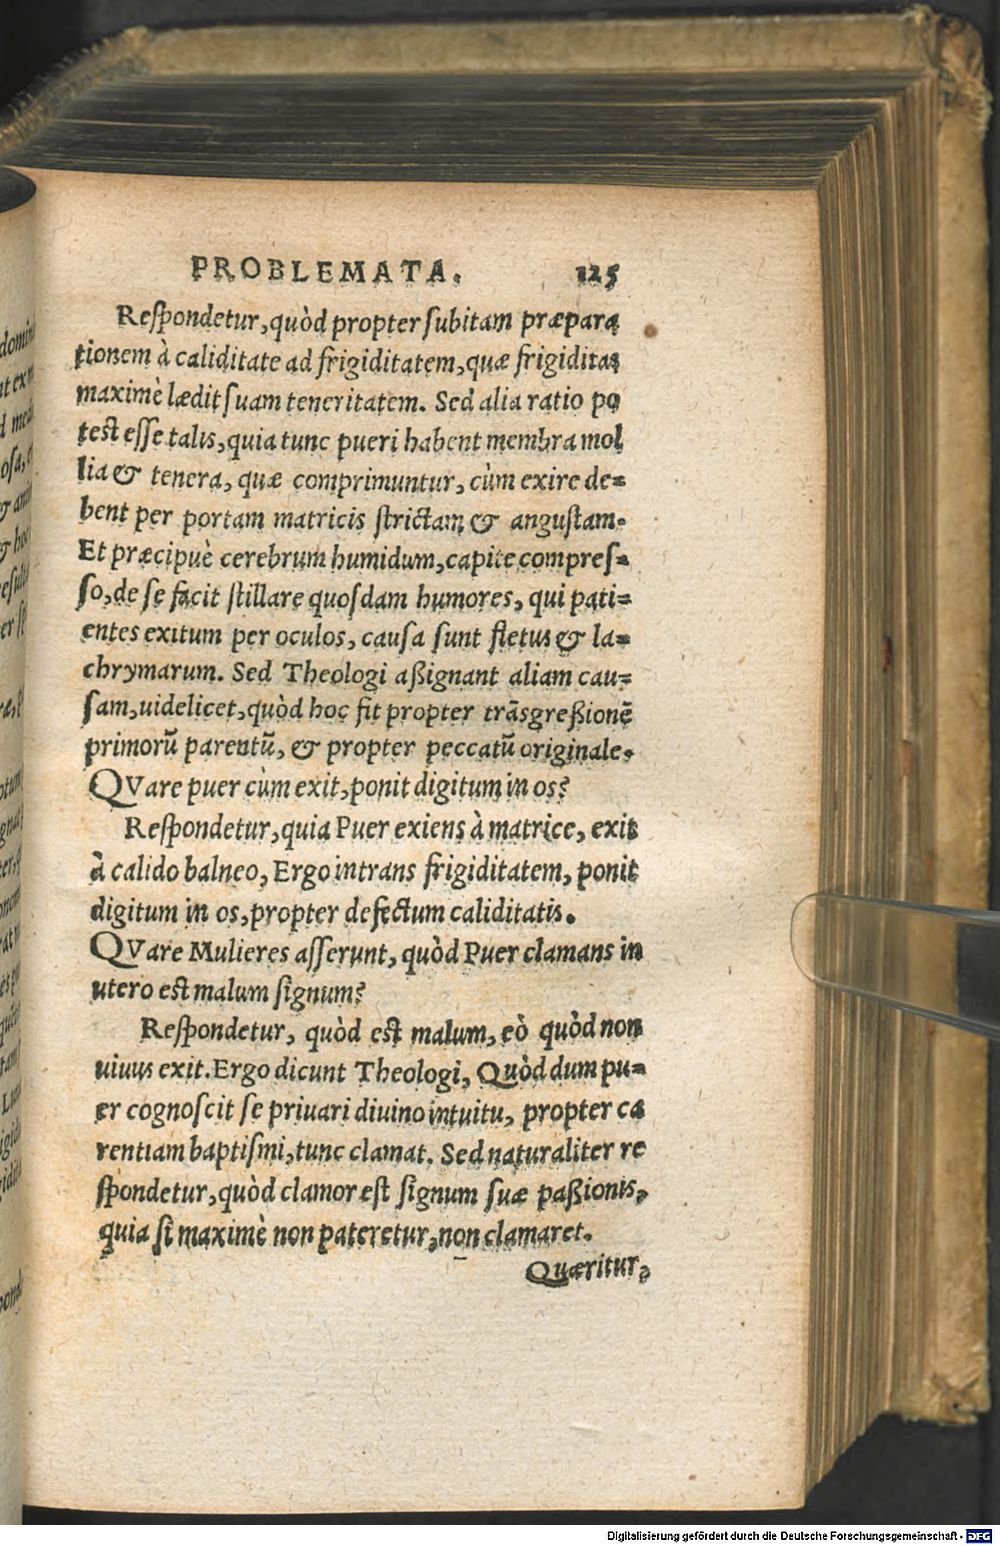 PROBLEMATA. 125
Respondetur, quòd propter subitam præpara
tionem à caliditate ad frigiditatem, quæ frigiditas
maximè lædit suam teneritatem. Sed alia ratio po
test esse talis, quia tunc pueri habent membra mol
lia & tenera, quæ comprimuntur, cùm exire de=
bent per portam matricis strictam & angustam.
Et præcipuè cerebrum humidum, capite compres=
so, de se facit stillare quosdam humores, qui pati=
entes exitum per oculos, causa sunt fletus & la=
chrymarum. Sed Theologi aßignant aliam cau=
sam, uidelicet, quòd hoc fit propter trãsgreßionẽ
primorũ parentũ, & propter peccatũ originale.
QVare puer cùm exit, ponit digitum in os?
Respondetur, quia Puer exiens à matrice, exit
à calido balneo, Ergo intrans frigiditatem, ponit
digitum in os, propter defectum caliditatis.
QVare Mulieres asserunt, quòd Puer clamans in
utero est malum signum?
Respondetur, quòd est malum, eò quòd non
uiuus exit. Ergo dicunt Theologi, Quòd dum pu=
er cognoscit se priuari diuino intuitu, propter ca
rentiam baptismi, tunc clamat. Sed naturaliter re
spondetur, quòd clamor est signum suæ paßionis,
quia si maximè non pateretur, non clamaret.
Quæritur,
Digitalisierung gefördert durch die Deutsche Forschungsgemeinschaft - DFG